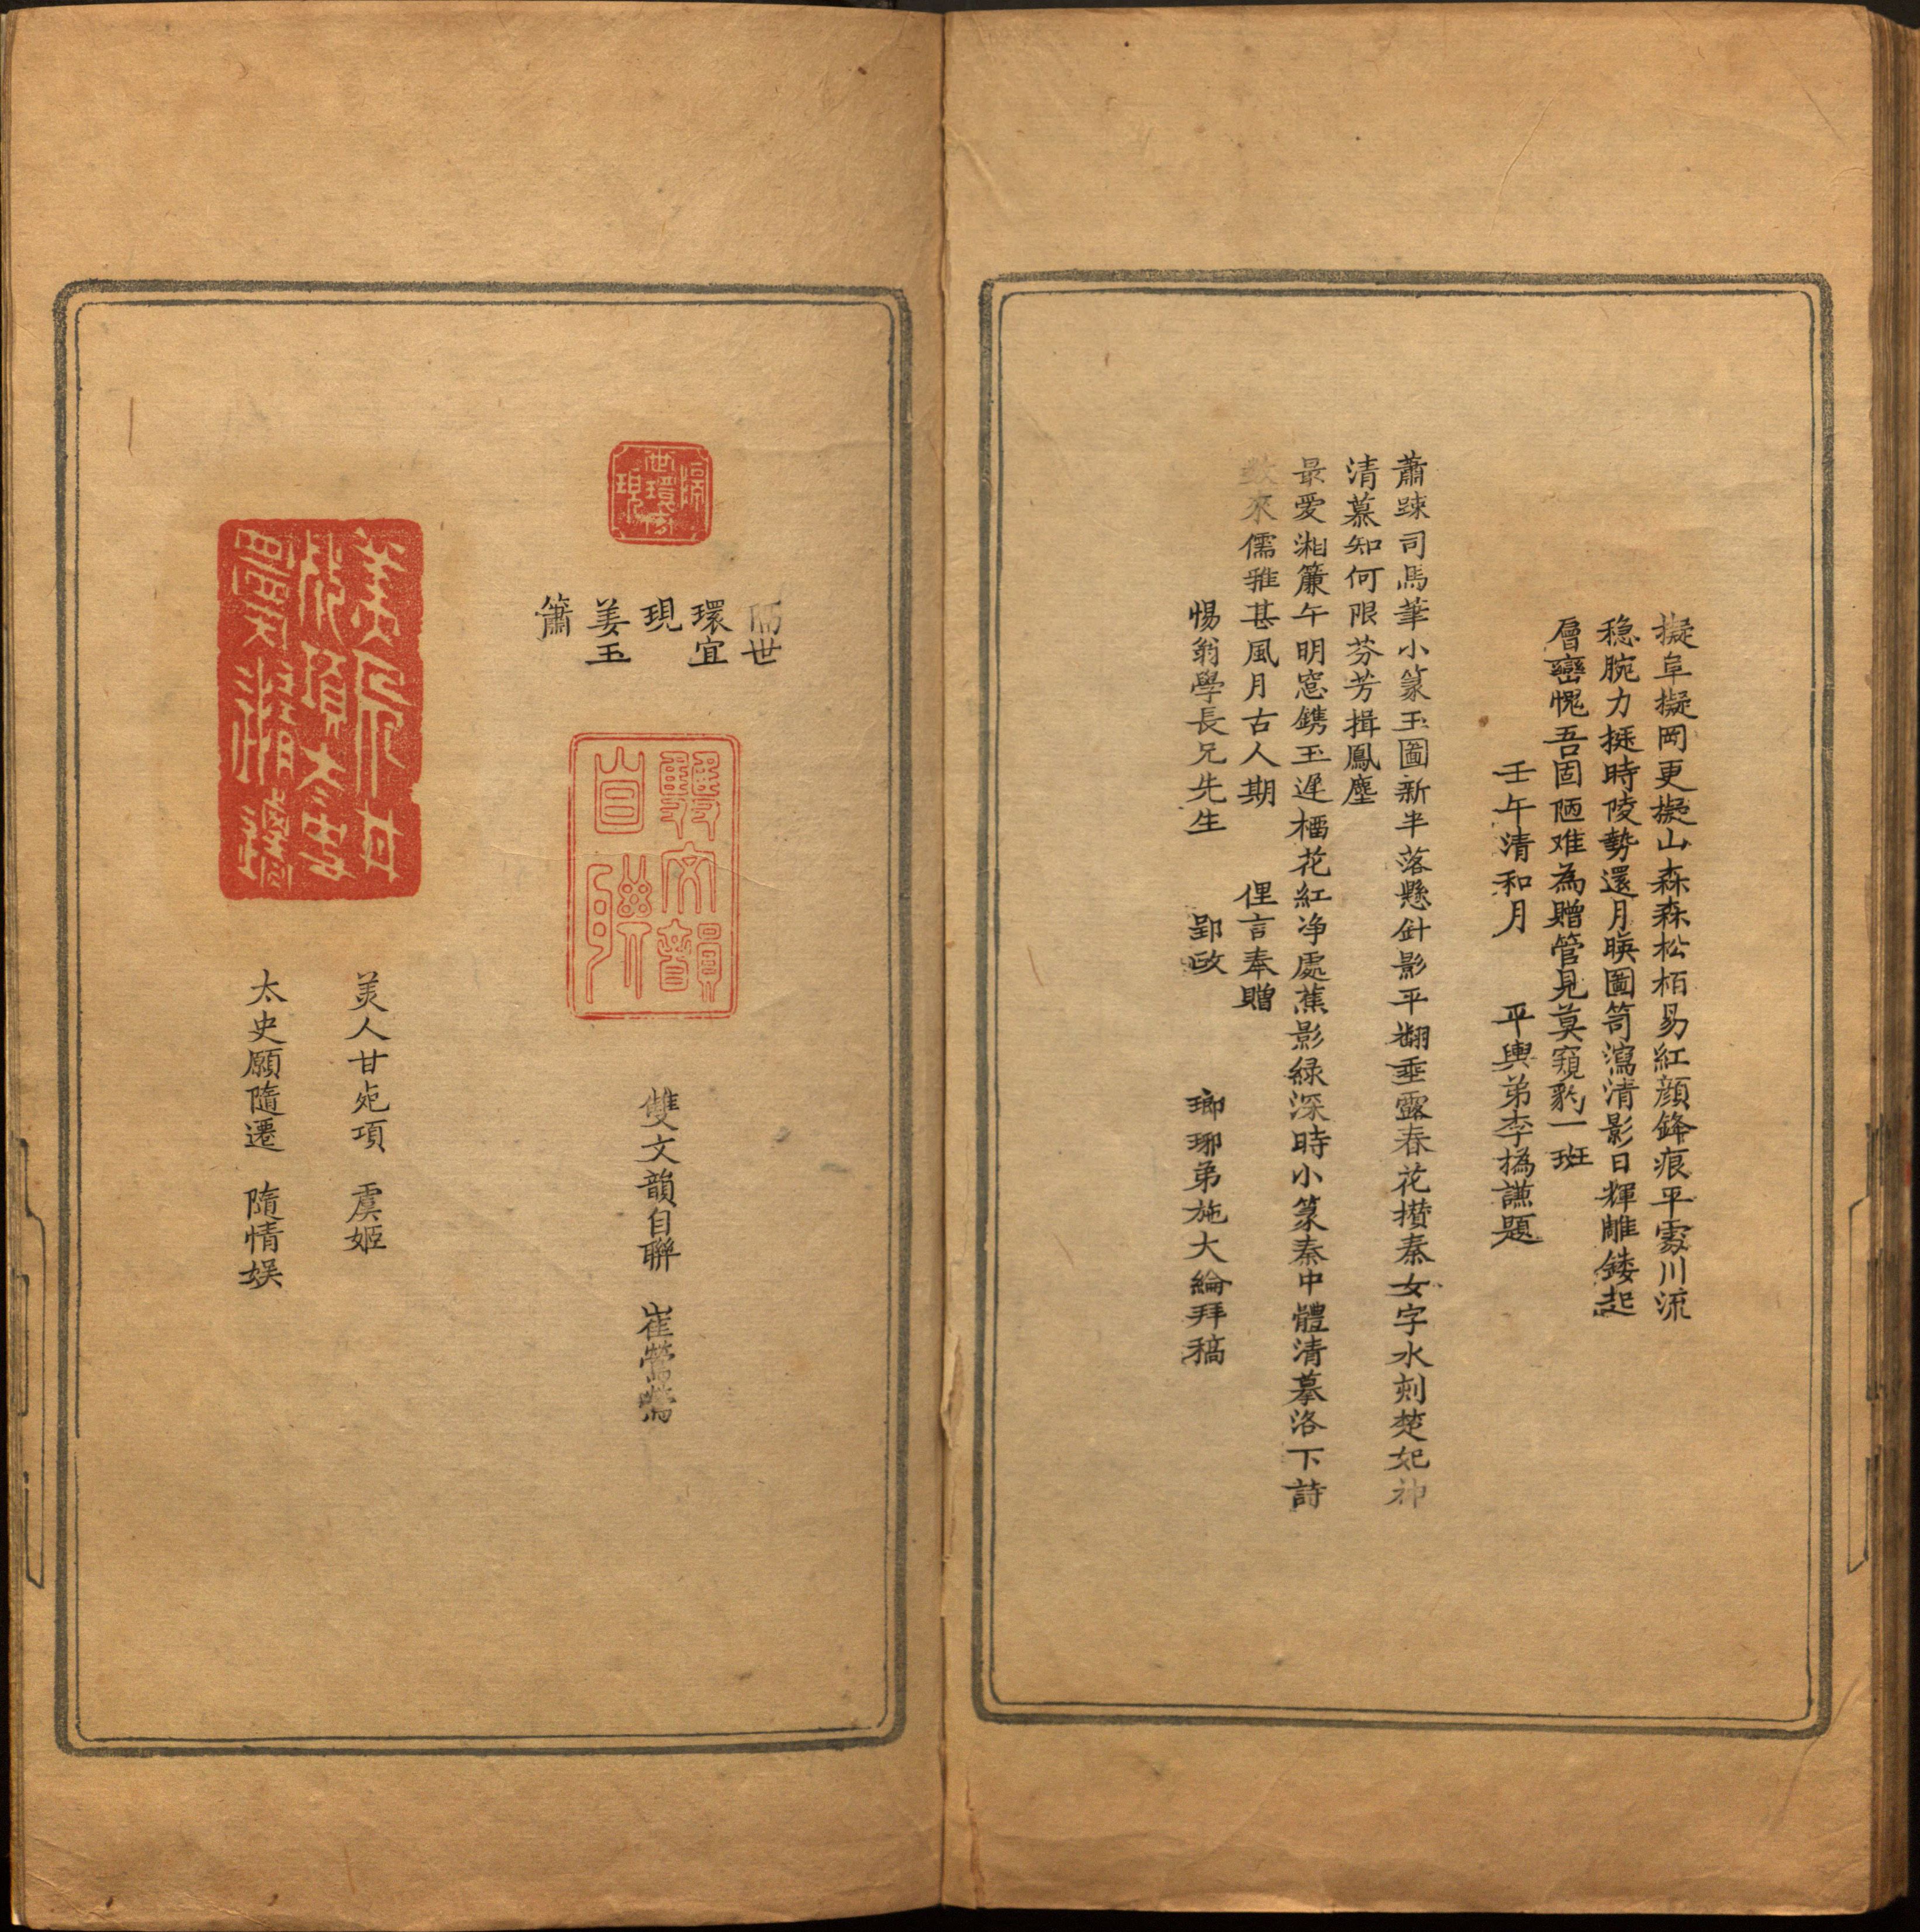 擬阜擬岡更擬山森森松栢易紅顔鋒痕平處川流
穏腕力挺時陵勢還月暎圖笥瀉清影日輝雕鏤起
層巒愧吾固陋难為贈管見莫窺豹一斑
壬午清和月　平輿弟李撝謙題
蕭踈司馬筆小篆玉圖新半落懸針影平翻垂露春花攅秦女字水刻楚妃神
清慕知何限芬芳揖鳳塵
最愛湘簾午明窓鐫玉遲橊花紅净處蕉影緑深時小篆秦中體清摹洛下詩
數來儒雅甚風月古人期　俚言奉贈
惕翁學長兄先生　郢政　瑯琊弟施大綸拜稿
隔世
環宜
現
姜玉
簫
雙文韻自聯　崔鶯鶯
美人甘處項　虞姬
太史願隨遷　隨情娱